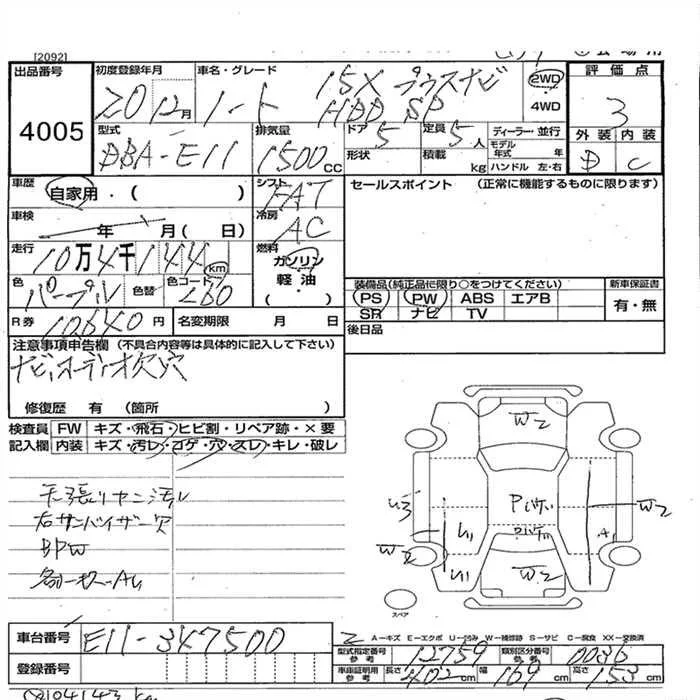 [2092]
出品番号 初度登録年月 車名・グレード 評価点
4005
20 12月 ノート 15X プラスナビ HDD SP 2WD 4WD 3
型式 排気量 ドア 定員 ディーラー・並行 外装 内装
DBA-E11 1500 CC 5 5人 モデル年式 年 D C
形状 積載 kg ハンドル 左・右
車歴 シフト セールスポイント (正常に機能するものに限ります)
自家用・( ) FAT
車検 年 月( 日) 冷房 AC
走行 10万4千144 km 燃料 ガソリン・軽油・( )
色 パープル 色替 色コード
装備品(純正品に限り○をつけてください) 新車保証書
PS PW ABS エアB 有・無
SR ナビ TV
R券 10640円 名変期限 月 日 後日品
注意事項申告欄 (不具合内容等は具体的に記入して下さい)
ナビ、オーディオ欠穴
修復歴 有 (箇所 )
検査員 FW キズ・飛石・ヒビ割・リペア跡・×要
記入欄 内装 キズ・汚レ・コゲ・穴・スレ・キレ・破レ
天張リヤニ汚レ
右サンバイザー欠
W2
U3
W2
W2
U1
A
W2
U1
W2
スペア
車台番号 E11-347500
A-キズ E-エクボ U-凹み W-補修跡 S-サビ C-腐食 XX-交換済
型式指定番号 参考 12759 類別区分番号 参考 0036
登録番号 車庫証明用 参考 長さ 402cm 幅 169cm 高さ 153cm